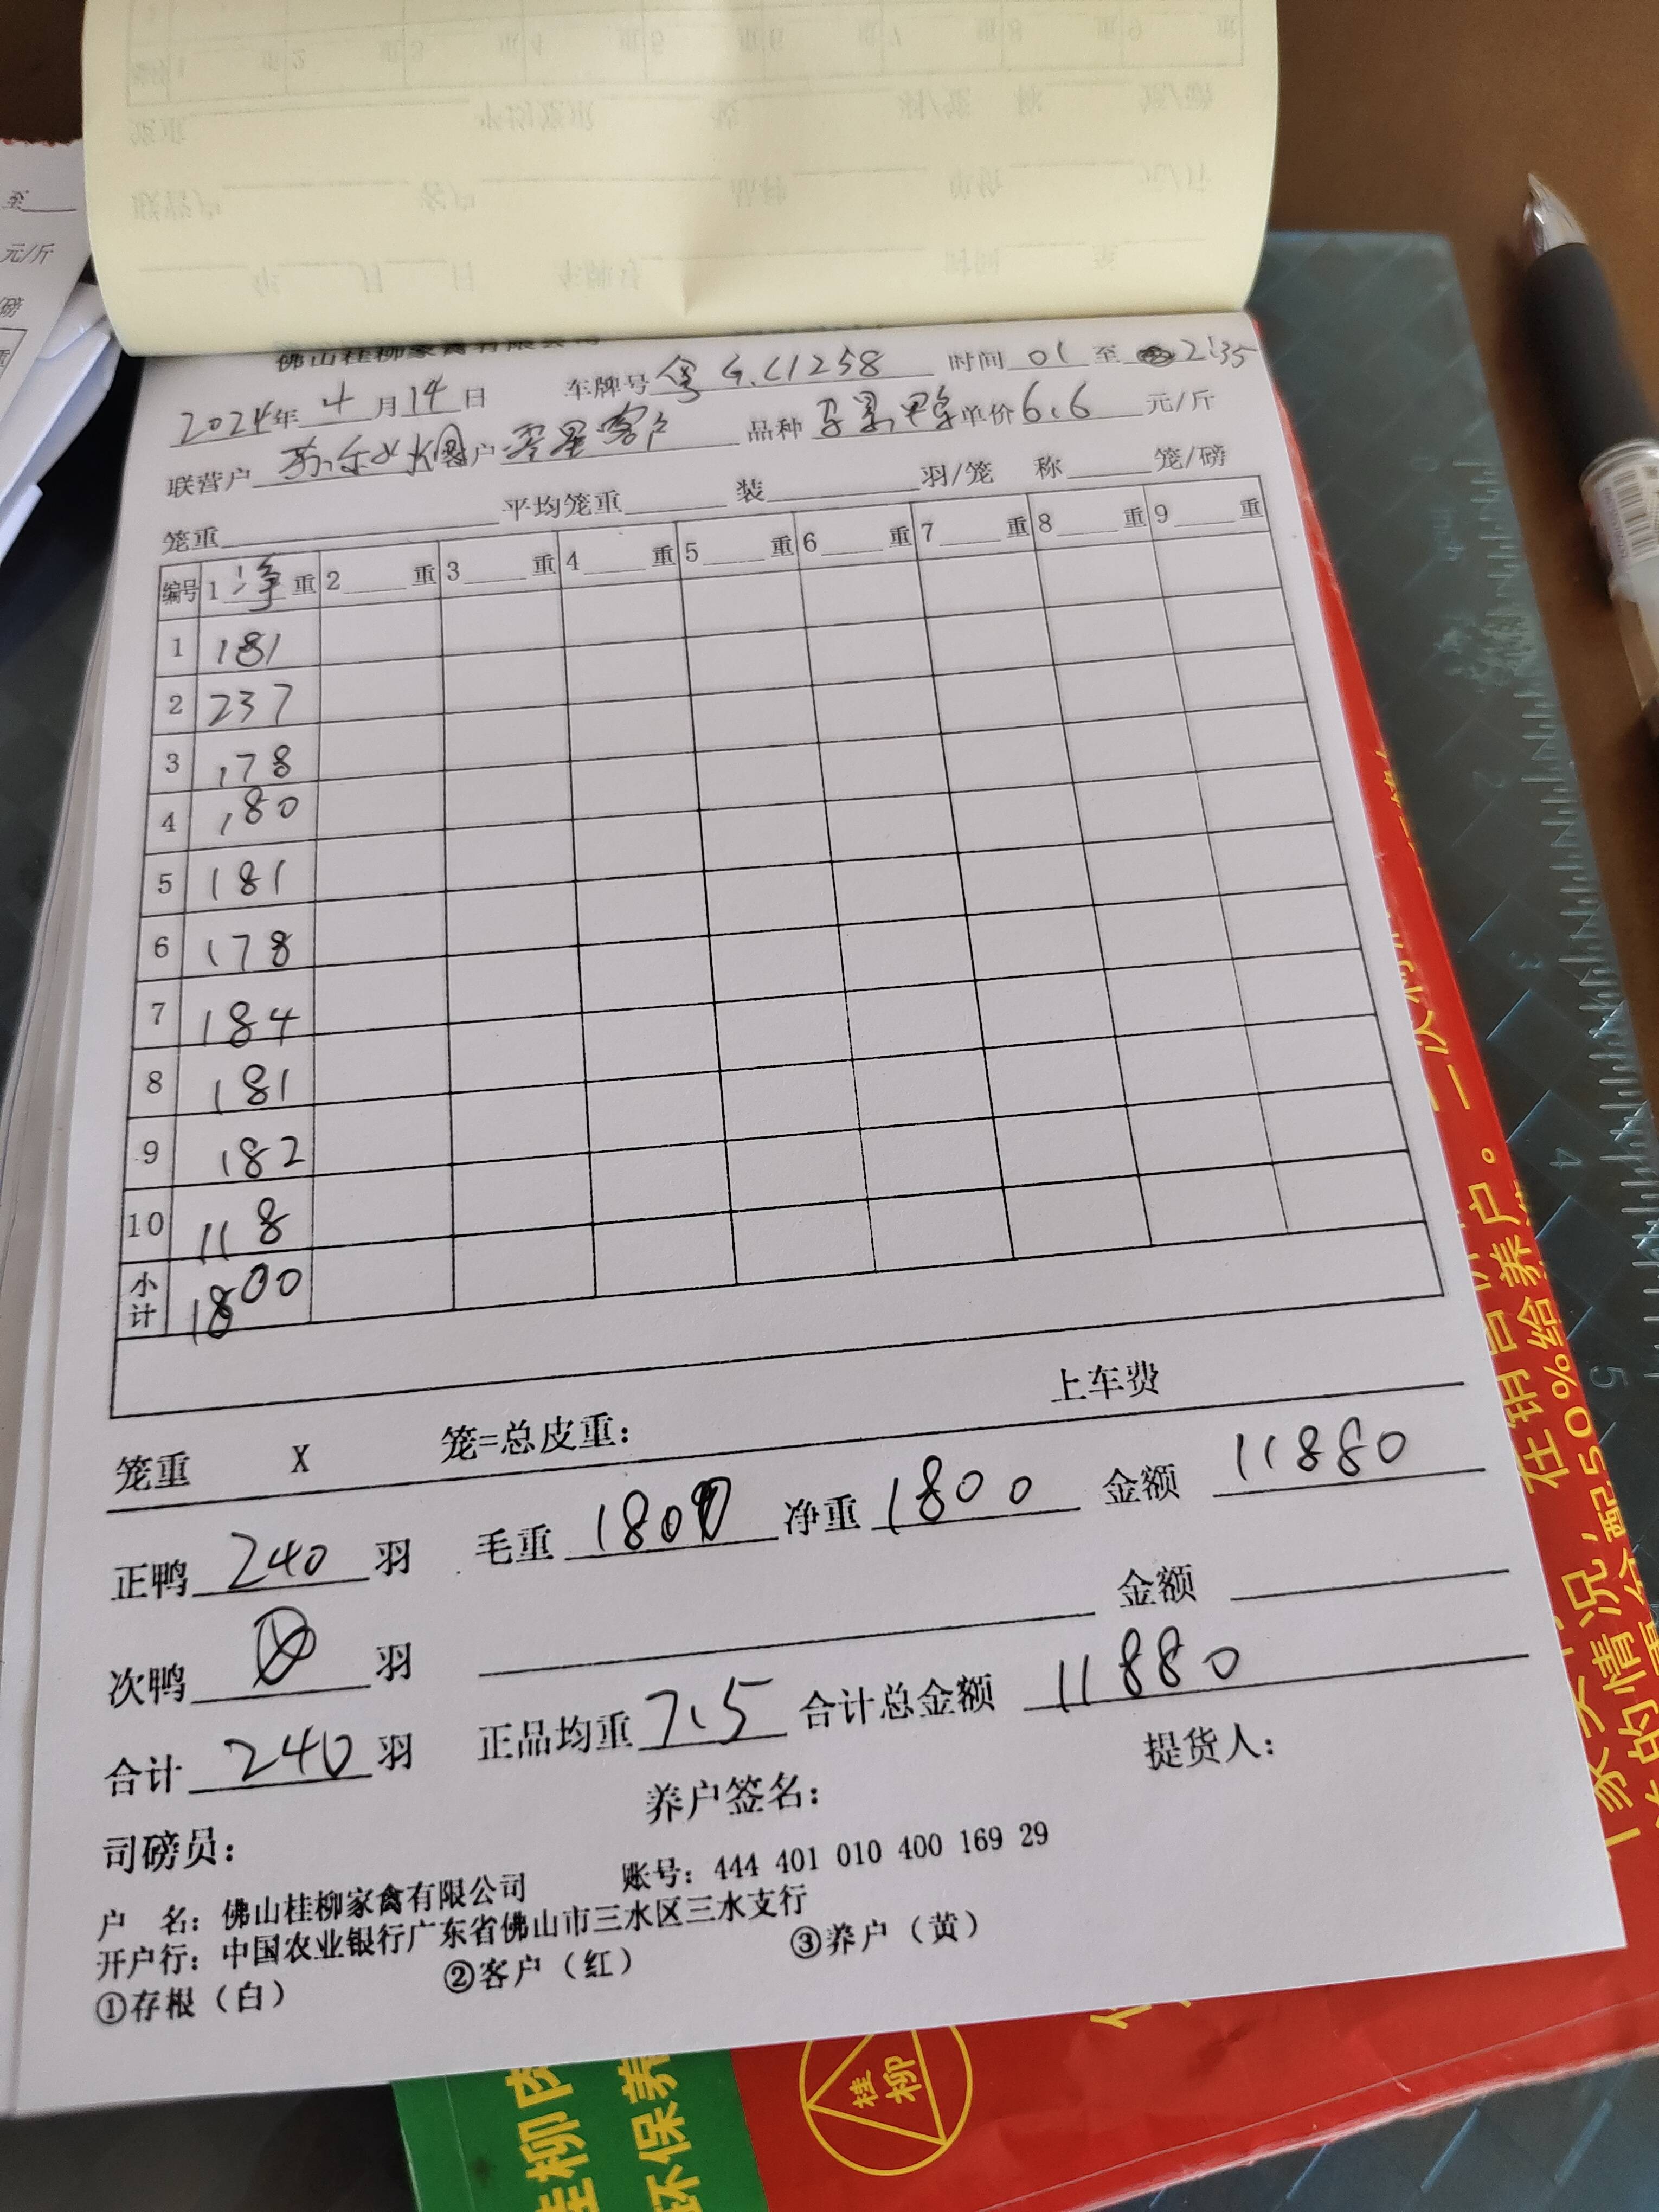 佛山桂柳家禽有限公司
2024年 4月14日 车牌号 粤G.C1258 时间 01 至 2:35
联营户 客户 零星客户 品种 单价6.6 元/斤
笼重 平均笼重 装 羽/笼 称 笼/磅
编号 1 净 重 2 重 3 重 4 重 5 重 6 重 7 重 8 重 9 重
1 181
2 237
3 178
4 180
5 181
6 178
7 184
8 181
9 182
10 118
小计 1800
上车费
笼重 X 笼=总皮重：
正鸭 240 羽 毛重 1800 净重 1800 金额 11880
次鸭 羽 金额
合计 240 羽 正品均重 7.5 合计总金额 11880
司磅员： 养户签名： 提货人：
户 名：佛山桂柳家禽有限公司 账号：444 401 010 400 169 29
开户行：中国农业银行广东省佛山市三水区三水支行
①存根（白） ②客户（红） ③养户（黄）
至
元/斤
磅
重
桂柳
环保养